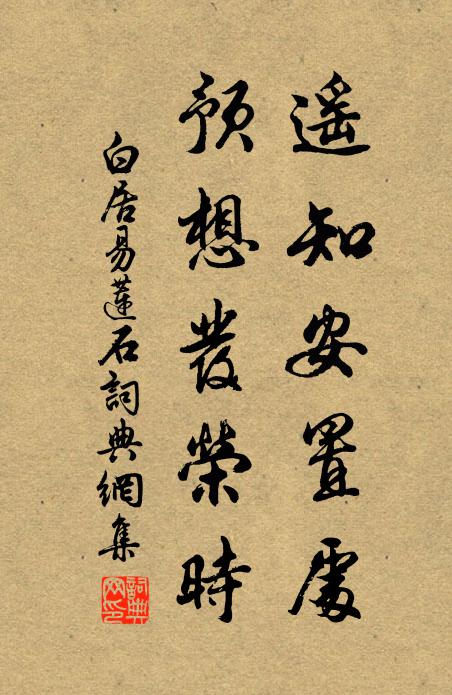 遥知安置處
預想發榮時
白居易蓮石詞典網集
詞典网印